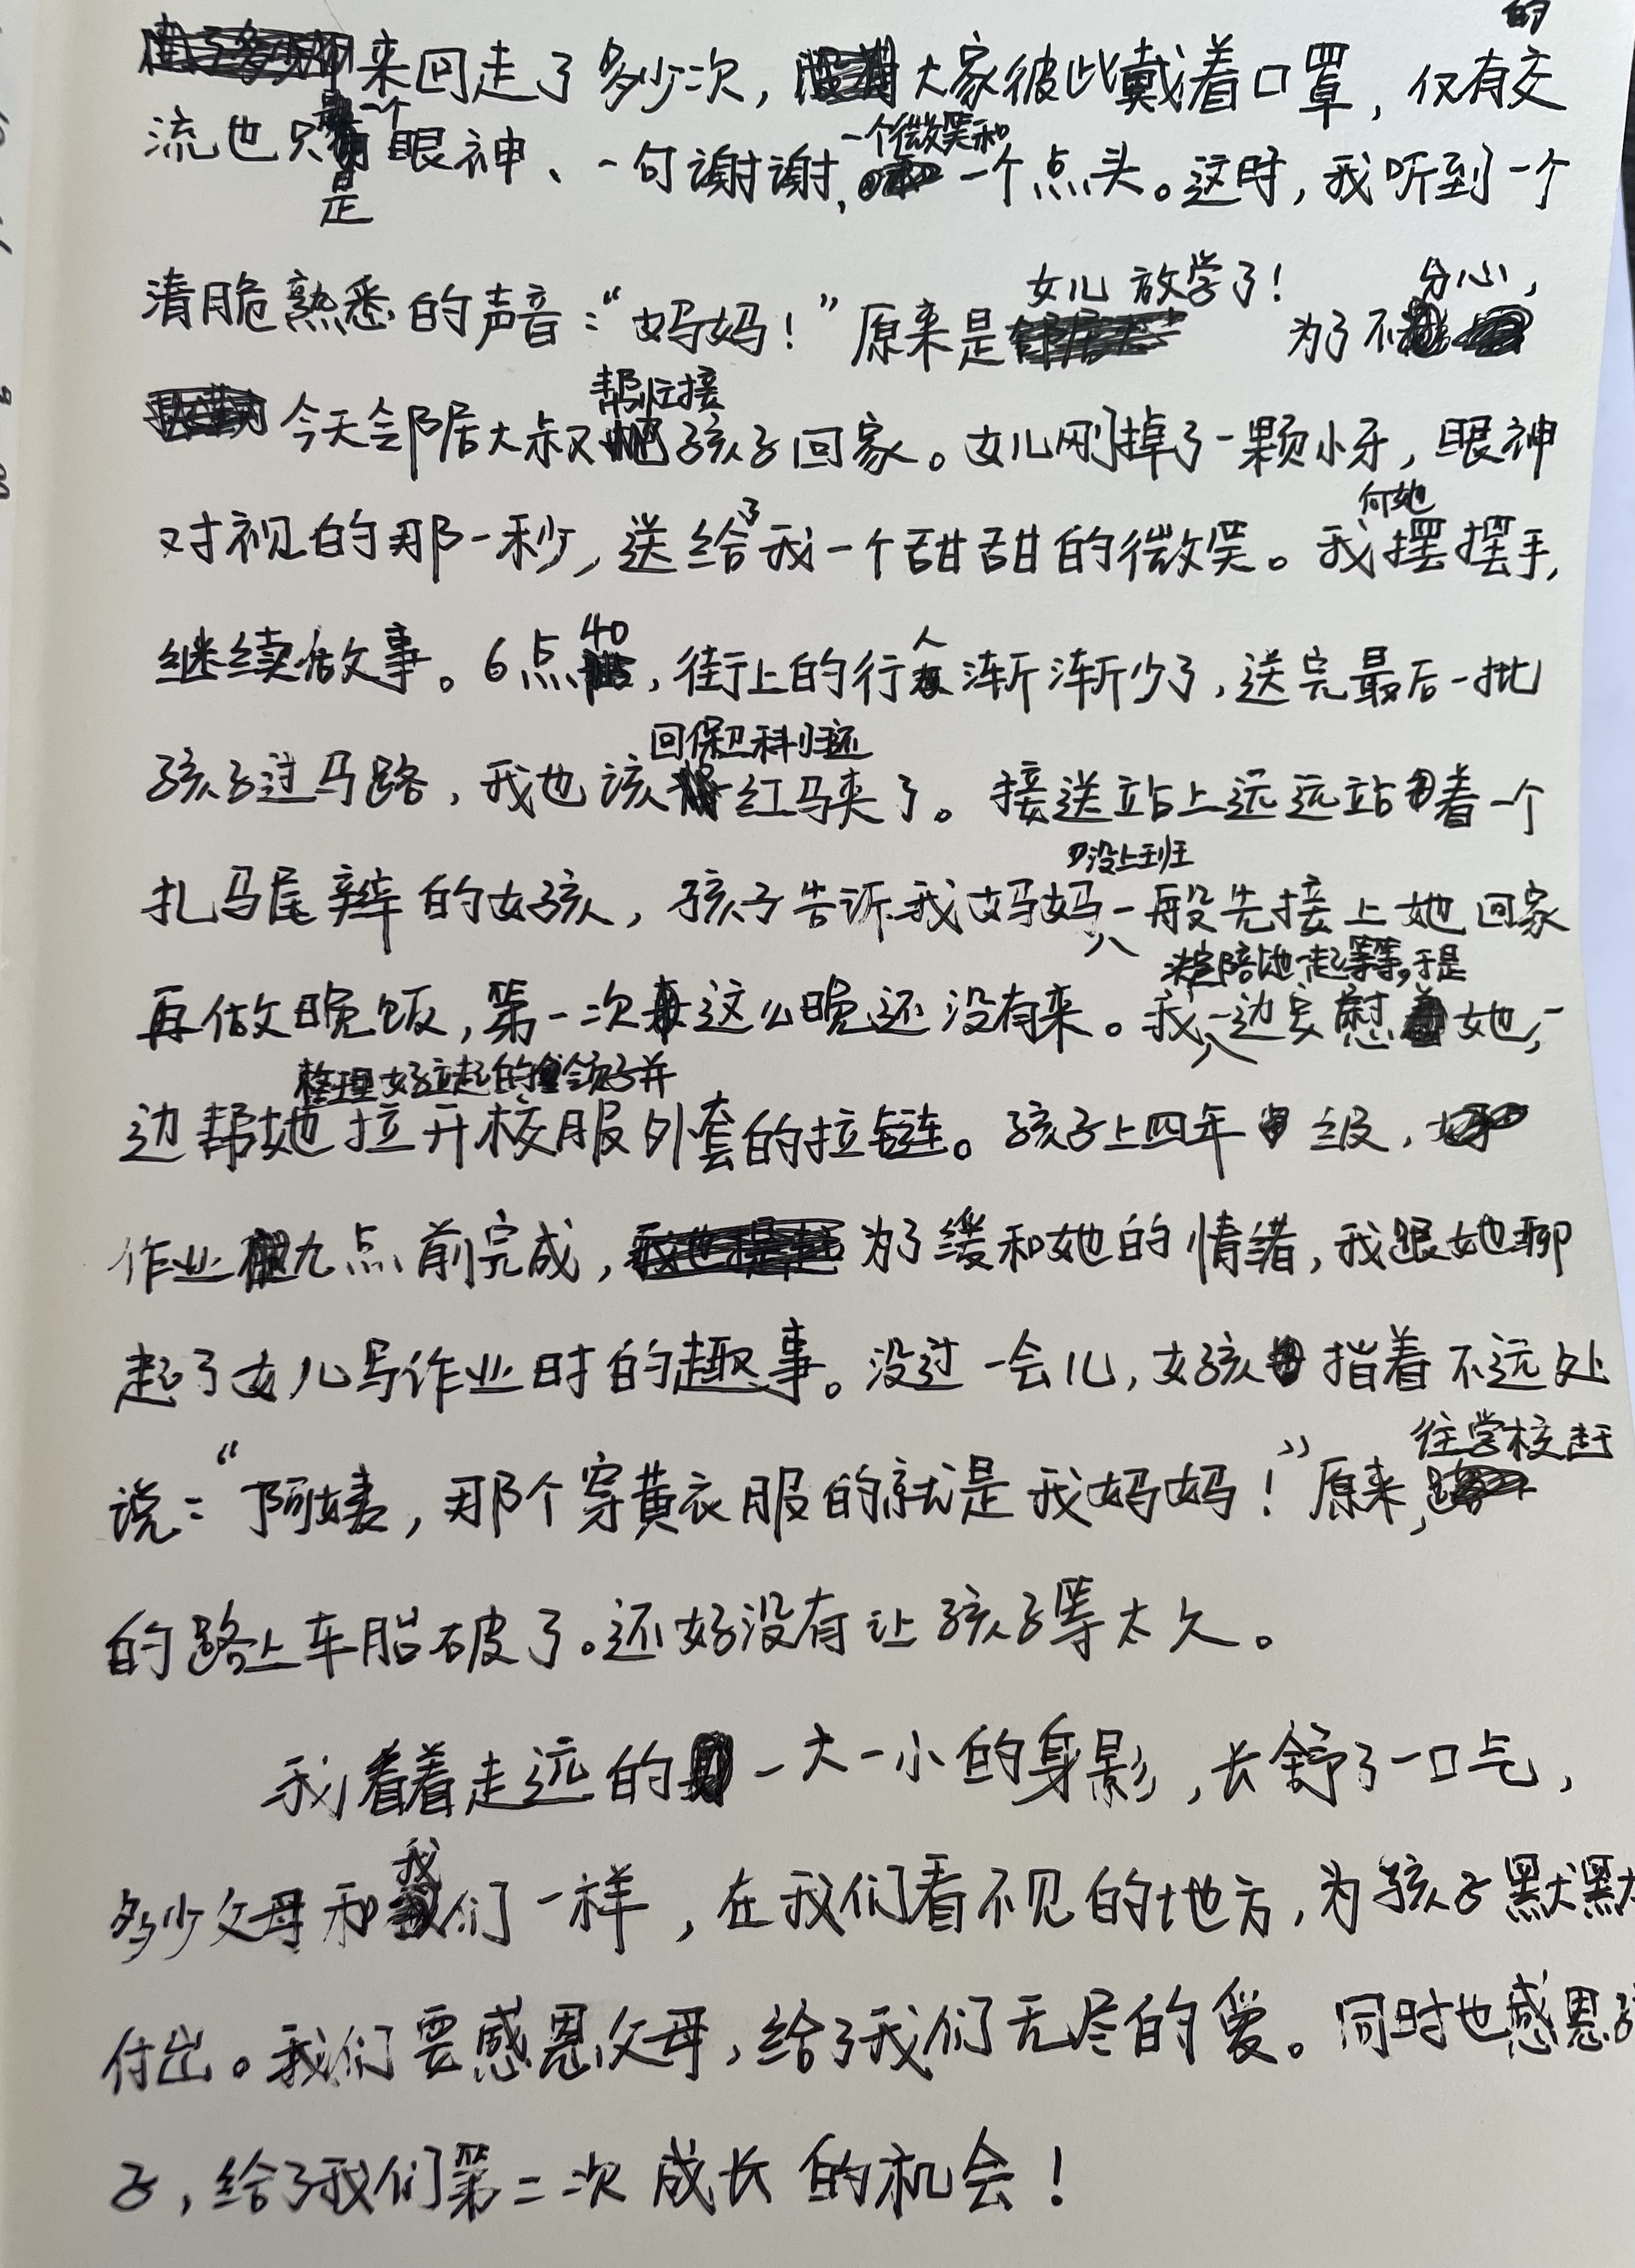 的
来回走了多少次，大家彼此戴着口罩，仅有交
一个
流也只是眼神、一句谢谢，一个点头。这时，我听到一个
一个微笑和
女儿放学了！
分心，
清脆熟悉的声音：“妈妈！”原来是 为了不
帮忙接
今天邻居大叔孩子回家。女儿刚掉了一颗小牙，眼神
了
向她
对视的那一秒，送给我一个甜甜的微笑。我摆摆手，
40
人
继续做事。6点，街上的行渐渐少了，送完最后一批
回保卫科归还
孩子过马路，我也该红马夹了。接送站上远远站着一个
没上班
扎马尾辫的女孩，孩子告诉我妈妈一般先接上她回家
决定陪她一起等等，于是
再做晚饭，第一次这么晚还没有来。我一边安慰她，一
整理好立起的领子并
边帮她拉开校服外套的拉链。孩子上四年级，
作业九点前完成，为了缓和她的情绪，我跟她聊
起了女儿写作业时的趣事。没过一会儿，女孩指着不远处
往学校赶
说：“阿姨，那个穿黄衣服的就是我妈妈！”原来，
的路上车胎破了。还好没有让孩子等太久。
我看着走远的一大一小的身影，长舒了一口气，
我
多少父母和们一样，在我们看不见的地方，为孩子默默
付出。我们要感恩父母，给了我们无尽的爱。同时也感恩孩
子，给了我们第二次成长的机会！